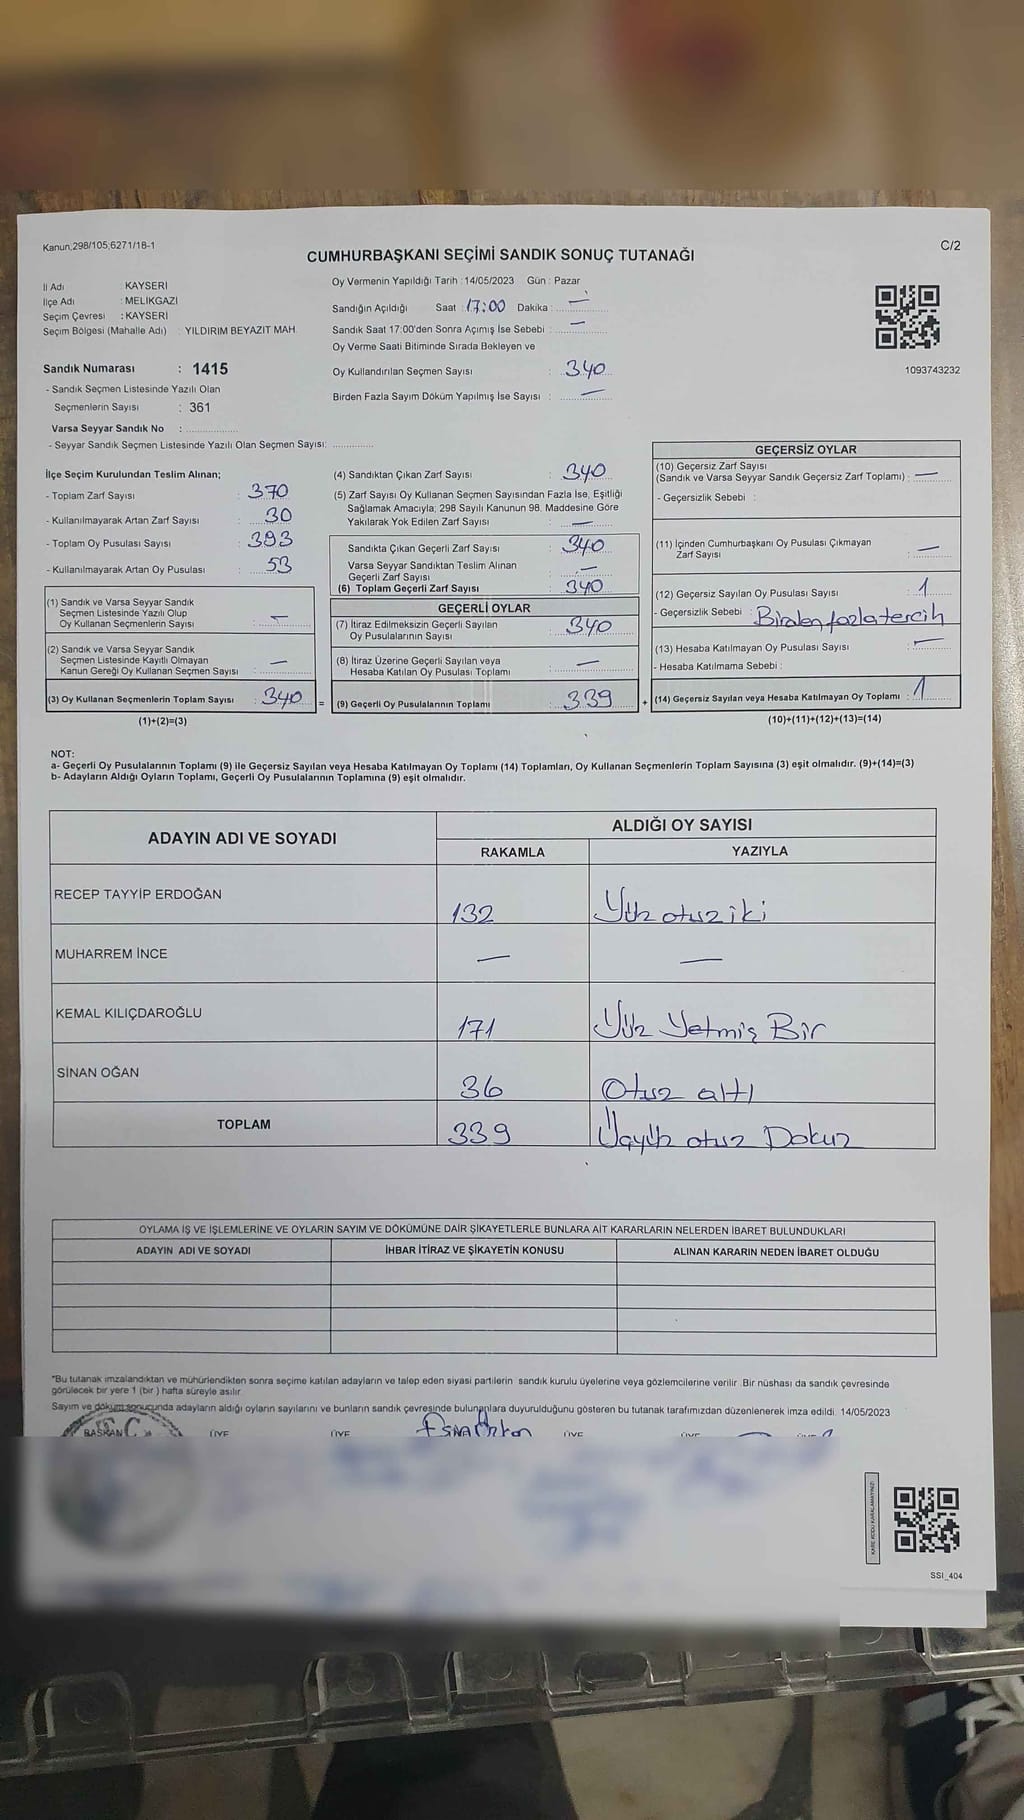 Kanun,298/105,6271/18-1
C/2
CUMHURBAŞKANI SEÇİMİ SANDIK SONUÇ TUTANAĞI
İl Adı : KAYSERİ
İlçe Adı : MELİKGAZİ
Seçim Çevresi : KAYSERİ
Seçim Bölgesi (Mahalle Adı) : YILDIRIM BEYAZIT MAH.
Sandık Numarası : 1415
- Sandık Seçmen Listesinde Yazılı Olan
Seçmenlerin Sayısı : 361
Varsa Seyyar Sandık No :
- Seyyar Sandık Seçmen Listesinde Yazılı Olan Seçmen Sayısı:
Oy Vermenin Yapıldığı Tarih : 14/05/2023 Gün : Pazar
Sandığın Açıldığı Saat : 17:00 Dakika : —
Sandık Saat 17:00'den Sonra Açımış İse Sebebi : —
Oy Verme Saati Bitiminde Sırada Bekleyen ve
Oy Kullandırılan Seçmen Sayısı : 340
Birden Fazla Sayım Döküm Yapılmış İse Sayısı : —
1093743232
İlçe Seçim Kurulundan Teslim Alınan;
- Toplam Zarf Sayısı : 370
- Kullanılmayarak Artan Zarf Sayısı : 30
- Toplam Oy Pusulası Sayısı : 393
- Kullanılmayarak Artan Oy Pusulası : 53
(1) Sandık ve Varsa Seyyar Sandık
Seçmen Listesinde Yazılı Olup
Oy Kullanan Seçmenlerin Sayısı : —
(2) Sandık ve Varsa Seyyar Sandık
Seçmen Listesinde Kayıtlı Olmayan
Kanun Gereği Oy Kullanan Seçmen Sayısı : —
(3) Oy Kullanan Seçmenlerin Toplam Sayısı : 340
(1)+(2)=(3)
(4) Sandıktan Çıkan Zarf Sayısı : 340
(5) Zarf Sayısı Oy Kullanan Seçmen Sayısından Fazla İse, Eşitliği
Sağlamak Amacıyla; 298 Sayılı Kanunun 98. Maddesine Göre
Yakılarak Yok Edilen Zarf Sayısı : —
Sandıkta Çıkan Geçerli Zarf Sayısı : 340
Varsa Seyyar Sandıktan Teslim Alınan
Geçerli Zarf Sayısı : —
(6) Toplam Geçerli Zarf Sayısı : 340
GEÇERLİ OYLAR
(7) İtiraz Edilmeksizin Geçerli Sayılan
Oy Pusulalarının Sayısı : 340
(8) İtiraz Üzerine Geçerli Sayılan veya
Hesaba Katılan Oy Pusulası Toplamı : —
= (9) Geçerli Oy Pusulalarının Toplamı : 339 +
GEÇERSİZ OYLAR
(10) Geçersiz Zarf Sayısı
(Sandık ve Varsa Seyyar Sandık Geçersiz Zarf Toplamı) : —
- Geçersizlik Sebebi :
(11) İçinden Cumhurbaşkanı Oy Pusulası Çıkmayan
Zarf Sayısı : —
(12) Geçersiz Sayılan Oy Pusulası Sayısı : 1
- Geçersizlik Sebebi : Birden fazla tercih
(13) Hesaba Katılmayan Oy Pusulası Sayısı : —
- Hesaba Katılmama Sebebi :
(14) Geçersiz Sayılan veya Hesaba Katılmayan Oy Toplamı : 1
(10)+(11)+(12)+(13)=(14)
NOT:
a- Geçerli Oy Pusulalarının Toplamı (9) ile Geçersiz Sayılan veya Hesaba Katılmayan Oy Toplamı (14) Toplamları, Oy Kullanan Seçmenlerin Toplam Sayısına (3) eşit olmalıdır. (9)+(14)=(3)
b- Adayların Aldığı Oyların Toplamı, Geçerli Oy Pusulalarının Toplamına (9) eşit olmalıdır.
ADAYIN ADI VE SOYADI ALDIĞI OY SAYISI
RAKAMLA YAZIYLA
RECEP TAYYİP ERDOĞAN 132 Yüz otuz iki
MUHARREM İNCE — —
KEMAL KILIÇDAROĞLU 171 Yüz Yetmiş Bir
SİNAN OĞAN 36 Otuz altı
TOPLAM 339 Üçyüz otuz Dokuz
OYLAMA İŞ VE İŞLEMLERİNE VE OYLARIN SAYIM VE DÖKÜMÜNE DAİR ŞİKAYETLERLE BUNLARA AİT KARARLARIN NELERDEN İBARET BULUNDUKLARI
ADAYIN ADI VE SOYADI İHBAR İTİRAZ VE ŞİKAYETİN KONUSU ALINAN KARARIN NEDEN İBARET OLDUĞU
*Bu tutanak imzalandıktan ve mühürlendikten sonra seçime katılan adayların ve talep eden siyasi partilerin sandık kurulu üyelerine veya gözlemcilerine verilir. Bir nüshası da sandık çevresinde
görülecek bir yere 1 (bir ) hafta süreyle asılır.
Sayım ve döküm sonucunda adayların aldığı oyların sayılarını ve bunların sandık çevresinde bulunanlara duyurulduğunu gösteren bu tutanak tarafımızdan düzenlenerek imza edildi. 14/05/2023
T.C.
BAŞKAN ÜYE ÜYE ÜYE ÜYE
KARE KODU KARALAMAYINIZ!
SSİ_404